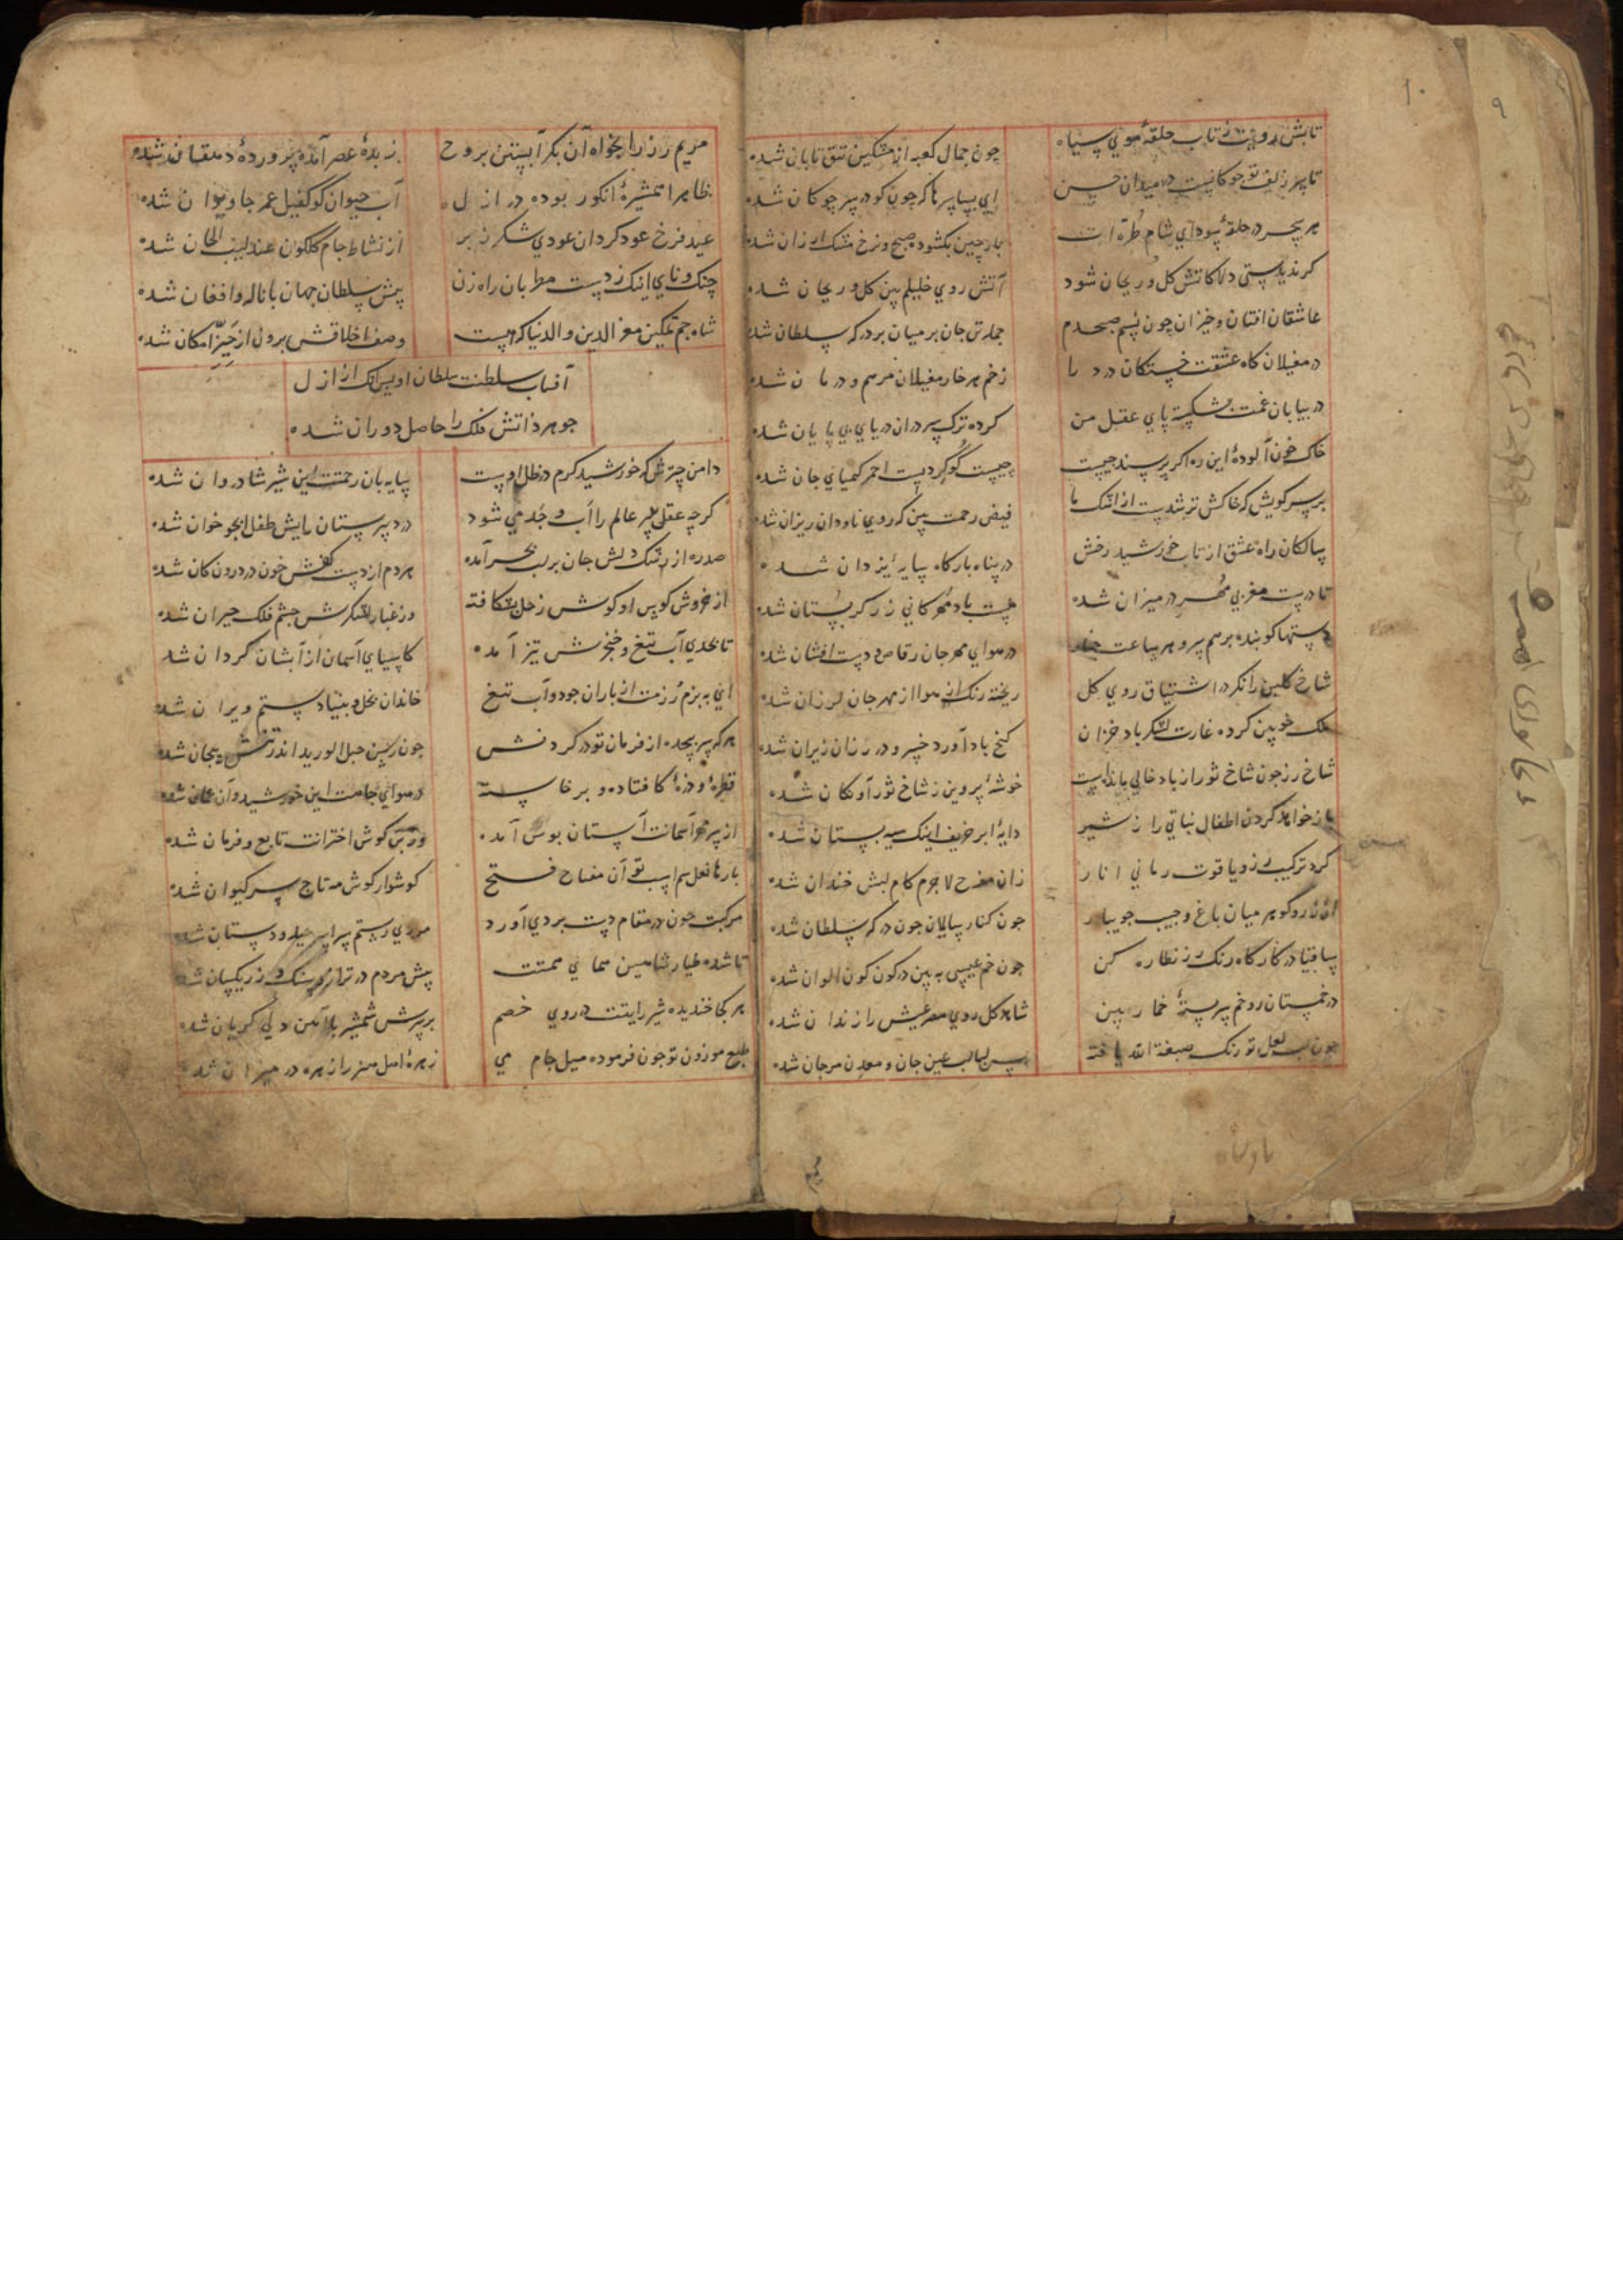 ۹
۱۰
تابش رویت ز تاب حلقهٔ موی سیاه چون جمال کعبه از مشکین تتق تابان شده
تا سر زلف تو چوکانیست در میدان حسن ای بسا سرها که چون کو در سر چوکان شده
هر سحر در حلقهٔ سودای شام طره ات بار چین بکشوده صبح و نرخ مشک ارزان شده
کر ندیدستی دلا کاتش کل و ریحان شود آتش روی خلیلم بین کل و ریحان شده
عاشقان افتان و خیزان چون نسیم صبحدم جمله تن جان بر میان بر درکه سلطان شده
در مغیلان کاه عشقت خستکان درد را زخم هر خار مغیلان مرهم و درمان شده
در بیابان غمت بشکسته پای عقل من کرده ترک سر در ان دریای بی پایان شده
خاک خون آلودهٔ این ره اکر پرسند چیست چیست کوکردیست احمر کیمیای جان شده
بر سر کویش که خاکش تر شدست از اشک ما فیض رحمت بین که روی ناودان ریزان شده
سالکان راه عشق از تاب خورشید رخش در پناه بارکاه سایهٔ یزدان شده
تا درست مغربی مهر در میزان شده هست باد مهرکانی زرکر بستان شده
دستها کوبنده بر هم سرو هر ساعت در هوای مهرجان رقاص و دست افشان شده
شاخ کلبن را نکر در اشتیاق روی کل ریخته رنک از هوا از مهرجان لرزان شده
ملک خوبین کرده غارت لشکر باد خزان کنج باد آورد خسرو در رزان ریزان شده
شاخ رز چون شاخ ثور از باد خالی مانده است خوشهٔ پروین ز شاخ ثور آونکان شده
باز خواهد کردن اطفال نباتی را ز شیر دایهٔ ابر خریف اینک سیه پستان شده
کرد ترکیب زر و یاقوت رمانی انار زان مفرح لاجرم کام لبش خندان شده
از زر و کوهر میان باغ و جیب جویبار چون کنار سایلان چون درکه سلطان شده
ساقیا در کارکاه رنک رز نظاره کن چون خم عیسی به بین در کون کون الوان شده
در خمستان رو خم سربستهٔ خمار بین شاهد کل روی مصر عیش را زندان شده
چون لب لعل تو رنک صبغة الله یافته پس لبالب عین جان و معدن مرجان شده
مریم رز را بخواه آن بکر آبستن بروح زبدهٔ عصر آمده پروردهٔ دهقان شده
ظاهرا همشیرهٔ انکور بوده در ازل آب حیوان کو کفیل عمر جاویدان شده
عید فرخ عود کردان عودی شکر ز بر از نشاط جام کلکون عندلیب الحان شده
چنک و نای اینک ز دست مطربان راه زن پیش سلطان جهان با ناله و افغان شده
شاه جم تمکین معز الدین و الدنیا که هست وصف اخلاقش برون از حیز امکان شده
آفتاب سلطنت سلطان اویس آنک از ازل
جوهر ذاتش فلک را حاصل دوران شده
دامن چترش که خورشید کرم در ظل اوست سایه بان رحمتت این شیر شادروان شده
کرچه عقل پیر عالم را اب و جد می شود در دبیرستان رایش طفل ابجد خوان شده
صدره از رشک دلش جان بر لب بحر آمده هر دم از دست کفش خون در درون کان شده
از خروش کوس او کوش زحل بشکافته وز غبار لشکرش چشم فلک حیران شده
تا بحدی آب تیغ و خنجرش تیز آمده کاسیای آسمان از آبشان کردان شد
ای به بزم و رزمت از باران جود و آب تیغ خاندان بخل و بنیاد ستم ویران شده
هر که سر پیچد از فرمان تو در کردنش چون رسن حبل الورید اندر تنش پیچان شده
قطرهٔ و ذرهٔ کافتاده و برخاسته در هوای جامت این خورشید و آن عمان شده
از سر مهر آسمانت آستان بوس آمده وز بن کوش اخترانت تابع فرمان شده
بارها نعل سم اسب تو آن مفتاح فتح کوشوار کوش مه تاج سر کیوان شده
مرکبت چون در مقام دست بردی آورد مردی رستم سراسر حیله و دستان شده
تا شده طیار شاهین همای همتت پیش مردم در ترازو سنک و زر یکسان شده
هر کجا خندیده شیر رایتت در روی خصم بر سرش شمشیر با آهن دلی کریان شده
طبع موزون تو چون فرموده میل جام می زهرهٔ اهل هنر را زهره در میزان شده